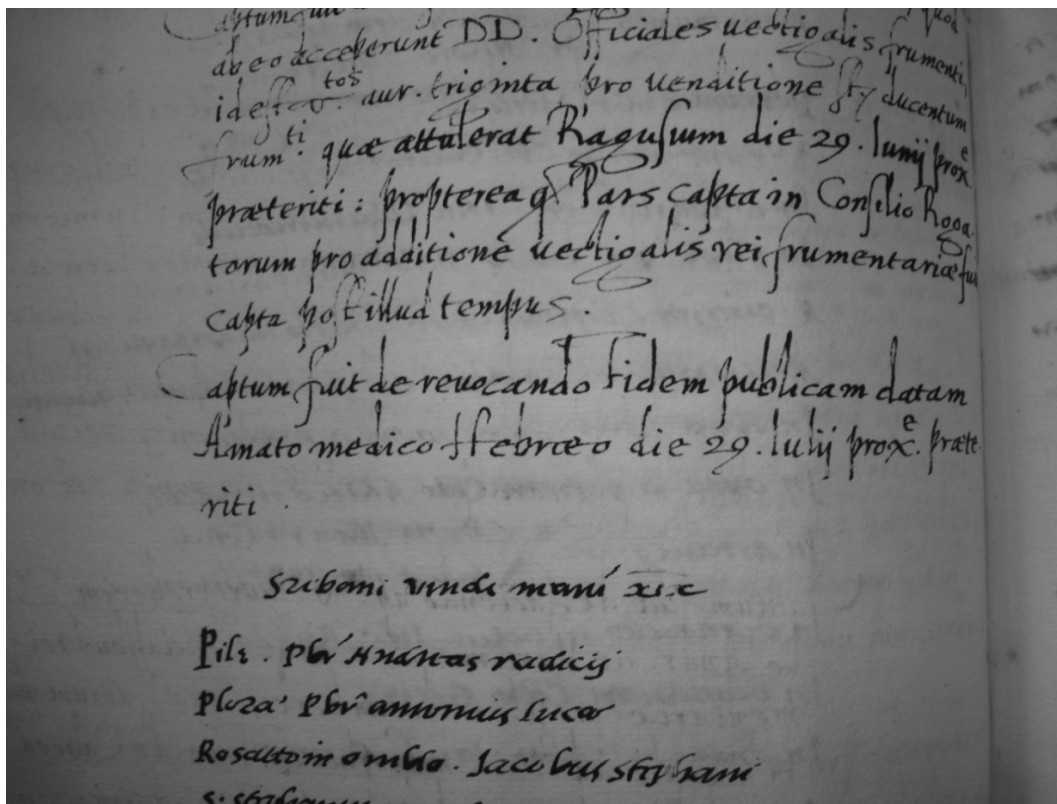 Captum fuit
ab eo acceperunt DD. Officiales uectigalis frumenti
idest tos aur. triginta pro uenditione ducentum
frumti. quæ attulerat Ragusium die 29. Iunij proxe
præteriti: propterea q Pars capta in Consilio Roga
torum pro additione uectigalis rei frumentariæ fuit
capta post illud tempus.
Captum fuit de revocando Fidem publicam datam
Amato medico Hebræo die 29. Iulij proxe. præte
riti.
vinde
Pile. radicij
Pbr antonius luce
Rosatto in ombla. Jacobus stephani